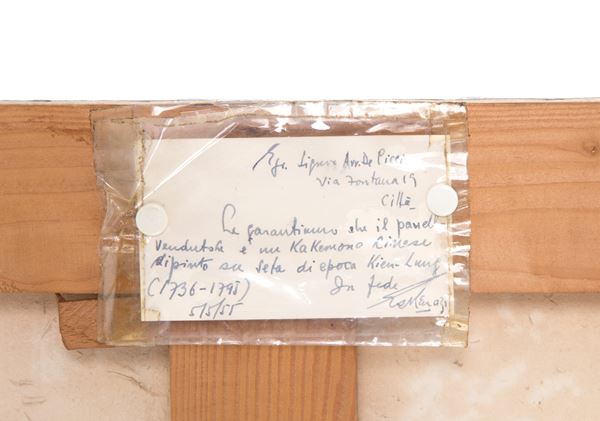 Egr. Signora Avv. De Cicci
Via Fontana 19
Città
Le garantiamo che il panel
vendutole è un Kakemono Cinese
dipinto su seta di epoca Kien-Lung
(1736-1795) In fede
5/5/55 Eskenazi